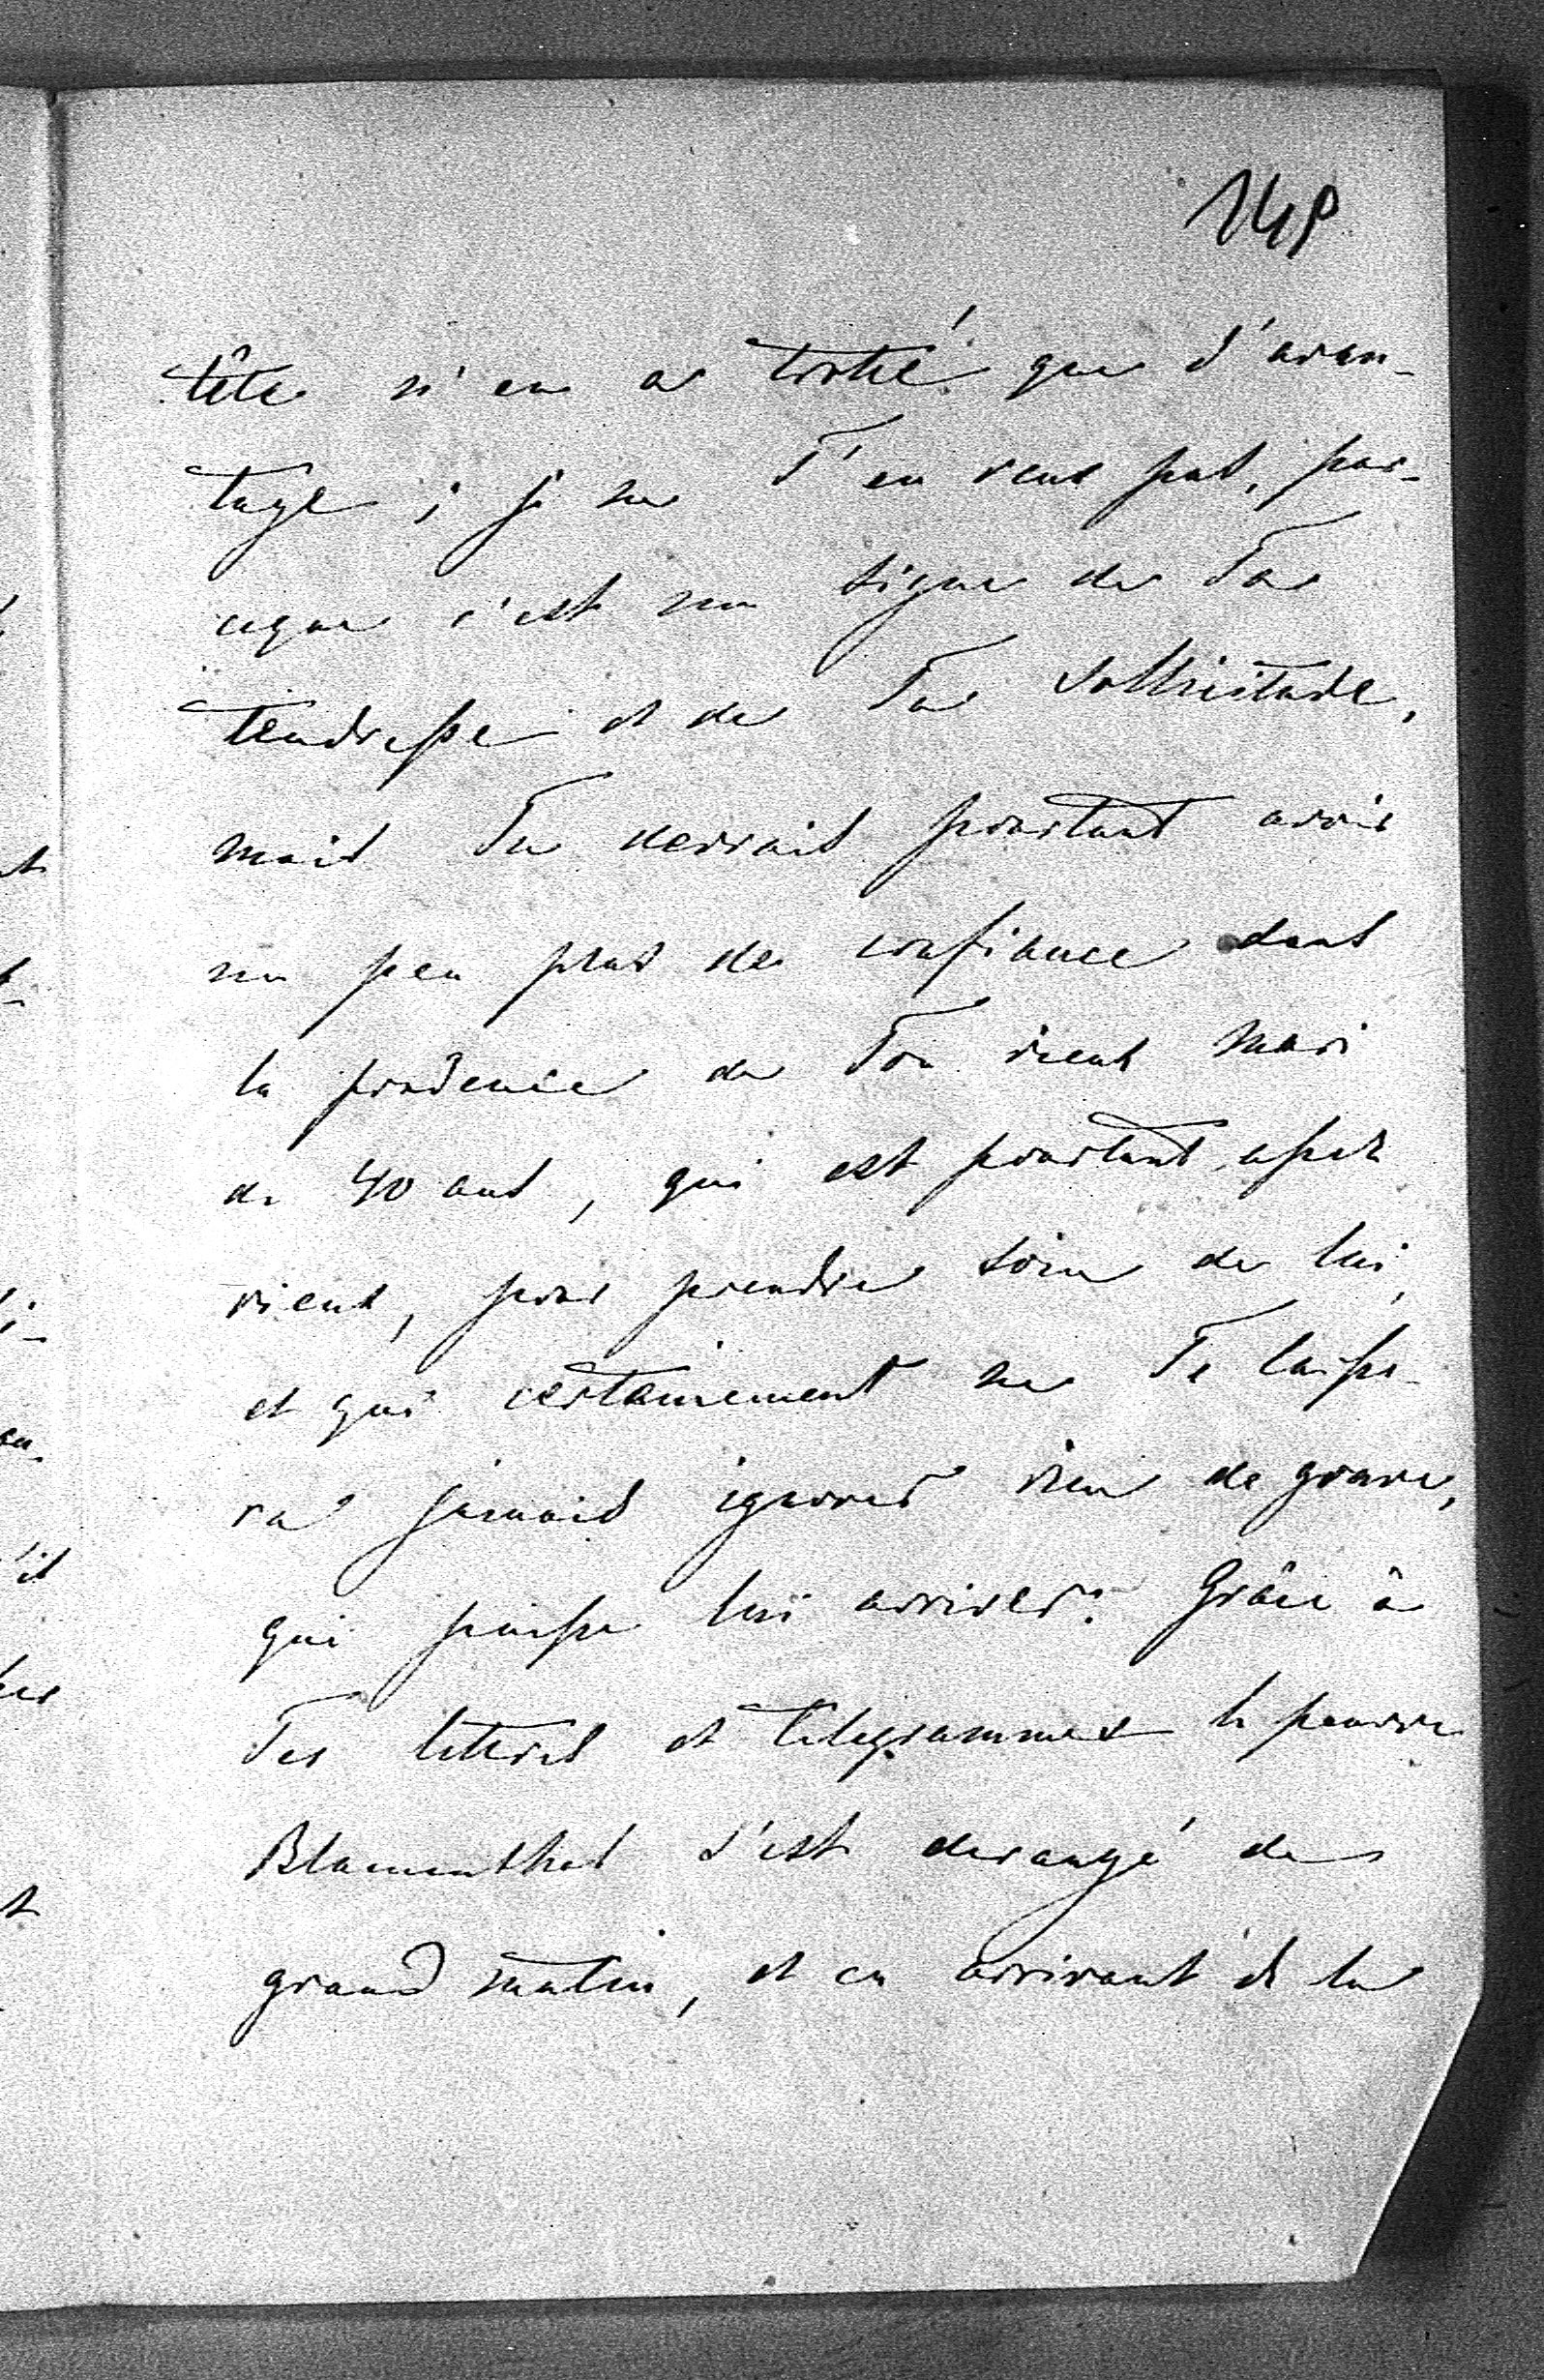 148
tête n'en a trotté que d'avan-
tage ; je ne T'en veux pas, par-
ceque c'est un signe de Ta
tendresse et de Ta sollicitude,
mais Tu devrais pourtant avoir
un peu plus de confiance dans
la prudence de Ton vieux mari
de 40 ans, qui est pourtant assez
vieux, pour prendre soin de lui,
et qui certainement ne Te laisse-
ra jamais ignorer rien de grave,
qui puisse lui arriver. Grâce à
Tes lettres et telegrammes le pauvre
Blumenthal s'est derangé de
grand matin, et en arrivant de la